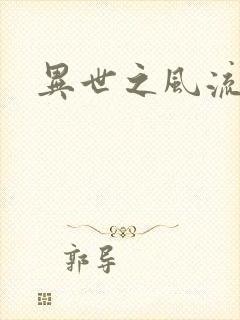 異世之風流
郭导